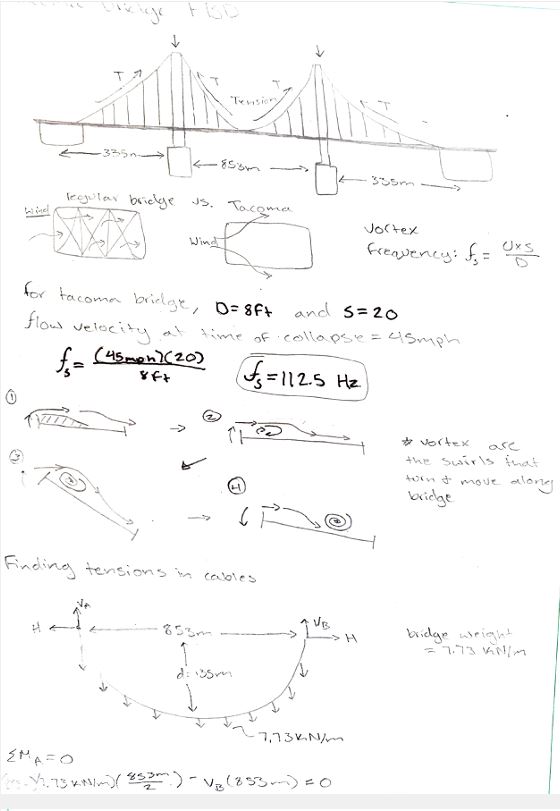 Bridge FBD
T T Tension T
335m 853m 335m
regular bridge vs. Tacoma
Wind Wind
Vortex
frequency: fs = U×S/D
for tacoma bridge, D=8ft and S=20
flow velocity at time of collapse = 45mph
fs = (45mph)(20)/8ft fs = 112.5 Hz
① ②
* vortex are
the swirls that
turn & move along
bridge
③ ④
Finding tensions in cables
VA VB
H 853m H
bridge weight
= 7.73 kN/m
d=135m
7.73kN/m
ΣMA=0
7.73 kN/m)(853m/2) - VB(853m) = 0